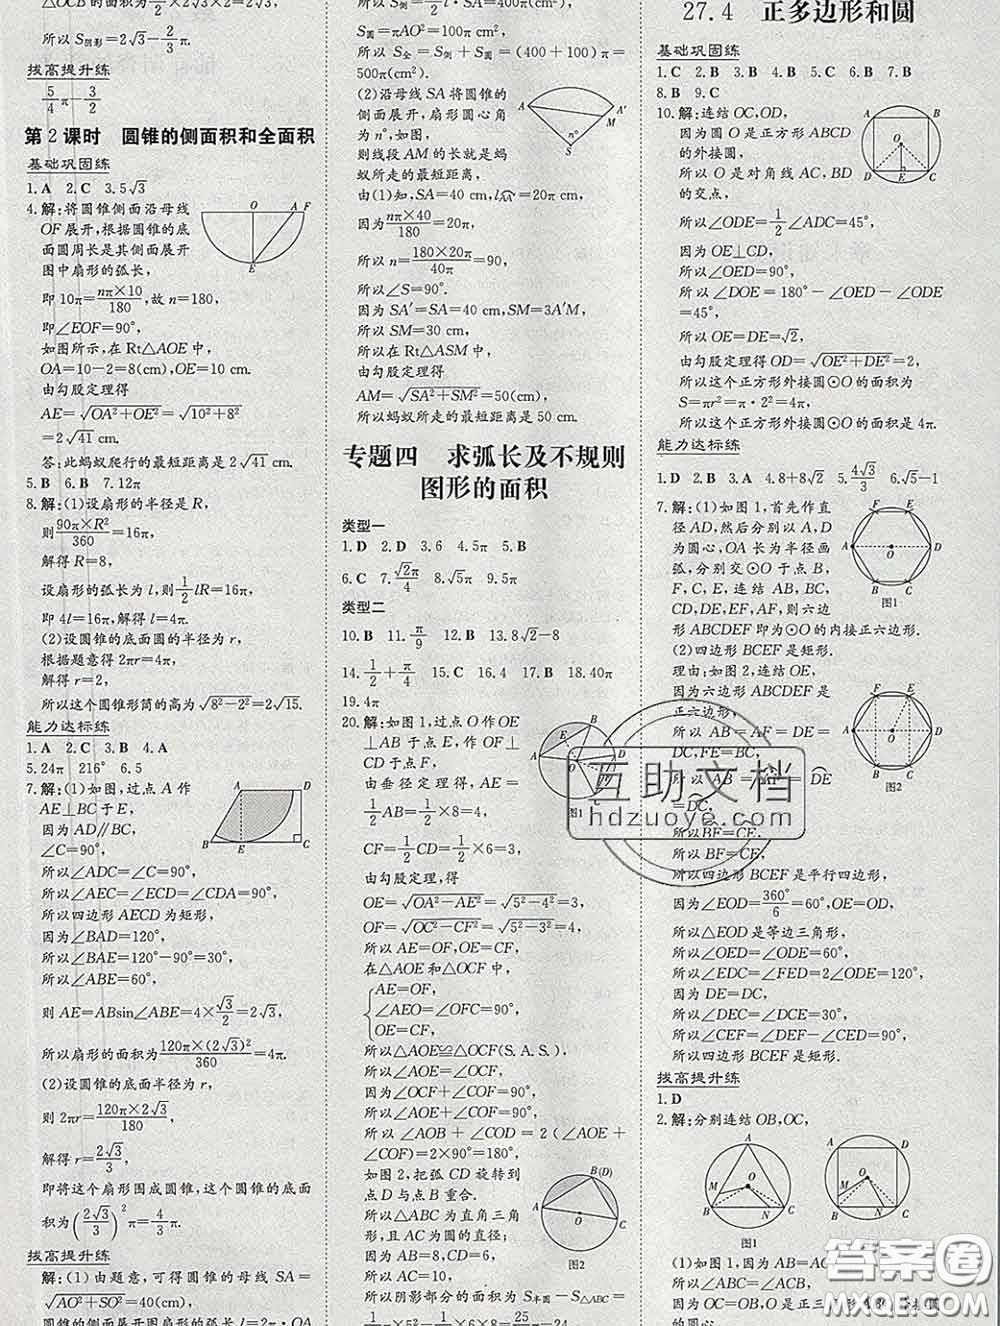 △OCB 的面积为 1/2×2√3×2=2√3.
所以 S阴影=2√3-2/3π.
拔高提升练
5/4π-3/2
第 2 课时 圆锥的侧面积和全面积
基础巩固练
1.A 2.C 3.5√3
4.解:将圆锥侧面沿母线
OF 展开,根据圆锥的底
面圆周长是其侧面展开
图中扇形的弧长,
即 10π=nπ×10/180,故 n=180,
即∠EOF=90°,
如图所示,在 Rt△AOE 中,
OA=10-2=8(cm),OE=10 cm.
由勾股定理得
AE=√(OA²+OE²)=√(10²+8²)
=2√41 cm.
答:此蚂蚁爬行的最短距离 2√41 cm.
5.B 6.B 7.12π
8.解:(1)设扇形的半径是 R,
则 90π×R²/360=16π,
解得 R=8,
设扇形的弧长为 l,则 1/2 lR=16π,
即 4l=16π,解得 l=4π.
(2)设圆锥的底面圆的半径为 r,
根据题意得 2πr=4π,
解得 r=2,
所以这个圆锥形筒的高为 √(8²-2²)=2√15.
能力达标练
1.A 2.C 3.B 4.A
5.24π 216° 6.5
7.解:(1)如图,过点 A 作
AE⊥BC 于 E,
因为 AD∥BC,
∠C=90°,
所以∠ADC=∠C=90°,
所以∠AEC=∠ECD=∠CDA=90°,
所以四边形 AECD 为矩形,
因为∠BAD=120°,
所以∠BAE=120°-90°=30°,
所以∠ABE=60°,
所以 AE=ABsin∠ABE=4×√3/2=2√3,
所以扇形的面积为 120π×(2√3)²/360=4π.
(2)设圆锥的底面半径为 r,
则 2πr=120π×2√3/180,
解得 r=2√3/3,
即将这个扇形围成圆锥,这个圆锥的底面
积为(2√3/3)²π=4/3π.
拔高提升练
解:(1)由题意,可得圆锥的母线 SA=
√(AO²+SO²)=40(cm),
圆锥的侧面展开图扇形的弧长 l=2π·OA
所以 S侧=
S圆=πAO²=100π cm²,
所以 S全=S侧+S圆=(400+100)π=
500π(cm²).
(2)沿母线 SA 将圆锥的
侧面展开,扇形圆心角
为 n°,如图,
则线段 AM 的长就是蚂
蚁所走的最短距离,
由(1)知,SA=40 cm,l=20π cm,
因为 nπ×40/180=20π,
所以 n=180×20π/40π=90,
所以∠S=90°,
因为 SA′=SA=40 cm,SM=3A′M,
所以 SM=30 cm,
所以在 Rt△ASM 中,
由勾股定理得
AM=√(SA²+SM²)=50(cm),
所以蚂蚁所走的最短距离是 50 cm.
专题四 求弧长及不规则
图形的面积
类型一
1.D 2.D 3.6 4.5π 5.B
6.C 7.√2π/4 8.√5π 9.5π
类型二
10.B 11.π/9 12.B 13.8√2-8
14.1/2+π/4 15.C 16.4 17.B 18.40π
19.4π
20.解:如图 1,过点 O 作 OE
⊥AB 于点 E,作 OF⊥
CD于点 F,
由垂径定理得,AE=
1/2AB=1/2×8=4,
CF=1/2CD=1/2×6=3,
由勾股定理得
OE=√(OA²-AE²)=√(5²-4²)=3,
OF=√(OC²-CF²)=√(5²-3²)=4,
所以 AE=OF,OE=CF,
在△AOE 和△OCF 中,
AE=OF,
∠AEO=∠OFC=90°,
OE=CF,
所以△AOE≌△OCF(S.A.S.),
因为∠OCF+∠COF=90°,
所以∠AOE+∠COF=90°,
所以∠AOB+∠COD=2(∠AOE+
∠COF)=2×90°=180°,
如图 2,把弧 CD 旋转到
点 D 与点 B 重合.
所以△ABC 为直角三角
形,且 AC 为圆的直径;
所以 AC=10,
所以阴影部分的面积=S半圆-S△ABC=
图1
图2
27.4 正多边形和圆
基础巩固练
1.C 2.B 3.A 4.B 5.C 6.B 7.B
8.B 9.C
10.解:连结 OC,OD,
因为圆 O 是正方形 ABCD
的外接圆,
所以 O 是对角线 AC,BD
的交点,
所以∠ODE=1/2∠ADC=45°,
因为 OE⊥CD,
所以∠OED=90°,
所以∠DOE=180°-∠OED-∠ODE
=45°,
所以 OE=DE=√2,
由勾股定理得 OD=√(OE²+DE²)=2,
所以这个正方形外接圆⊙O 的面积为
S=πr²=π×2²=4π,
所以这个正方形外接圆⊙O 的面积是 4π.
能力达标练
1.D 2.A 3.A 4.8+8√2 5.4√3/3 6.√5-1
7.解:(1)如图 1,首先作直
径 AD,然后分别以 A,D
为圆心,OA 长为半径画
弧,分别交⊙O 于点 B,
F,C,E,连结 AB,BC,
CD,DE,EF,AF,则正六边
形 ABCDEF 即为⊙O 的内接正六边形.
(2)四边形 BCEF 是矩形.
理由:如图 2,连结 OE,
因为六边形 ABCDEF 是
正六边形,
所以 AB=AF=DE=
DC,FE=BC,
所以
所以 BF=CE,
所以 BF=CE,
所以四边形 BCEF 是平行四边形,
因为∠EOD=360°/6=60°,OE=OD,
所以△EOD 是等边三角形,
所以∠OED=∠ODE=60°,
所以∠EDC=∠FED=2∠ODE=120°,
因为 DE=DC,
所以∠DEC=∠DCE=30°,
所以∠CEF=∠DEF-∠CED=90°,
所以四边形 BCEF 是矩形.
图1
图2
拔高提升练
1.D
2.解:分别连结 OB,OC,
图1
(1)如图 1,因为
因为 OC=OB,O
互助文档
hdzuoye.com
答案圈
MXQE.COM